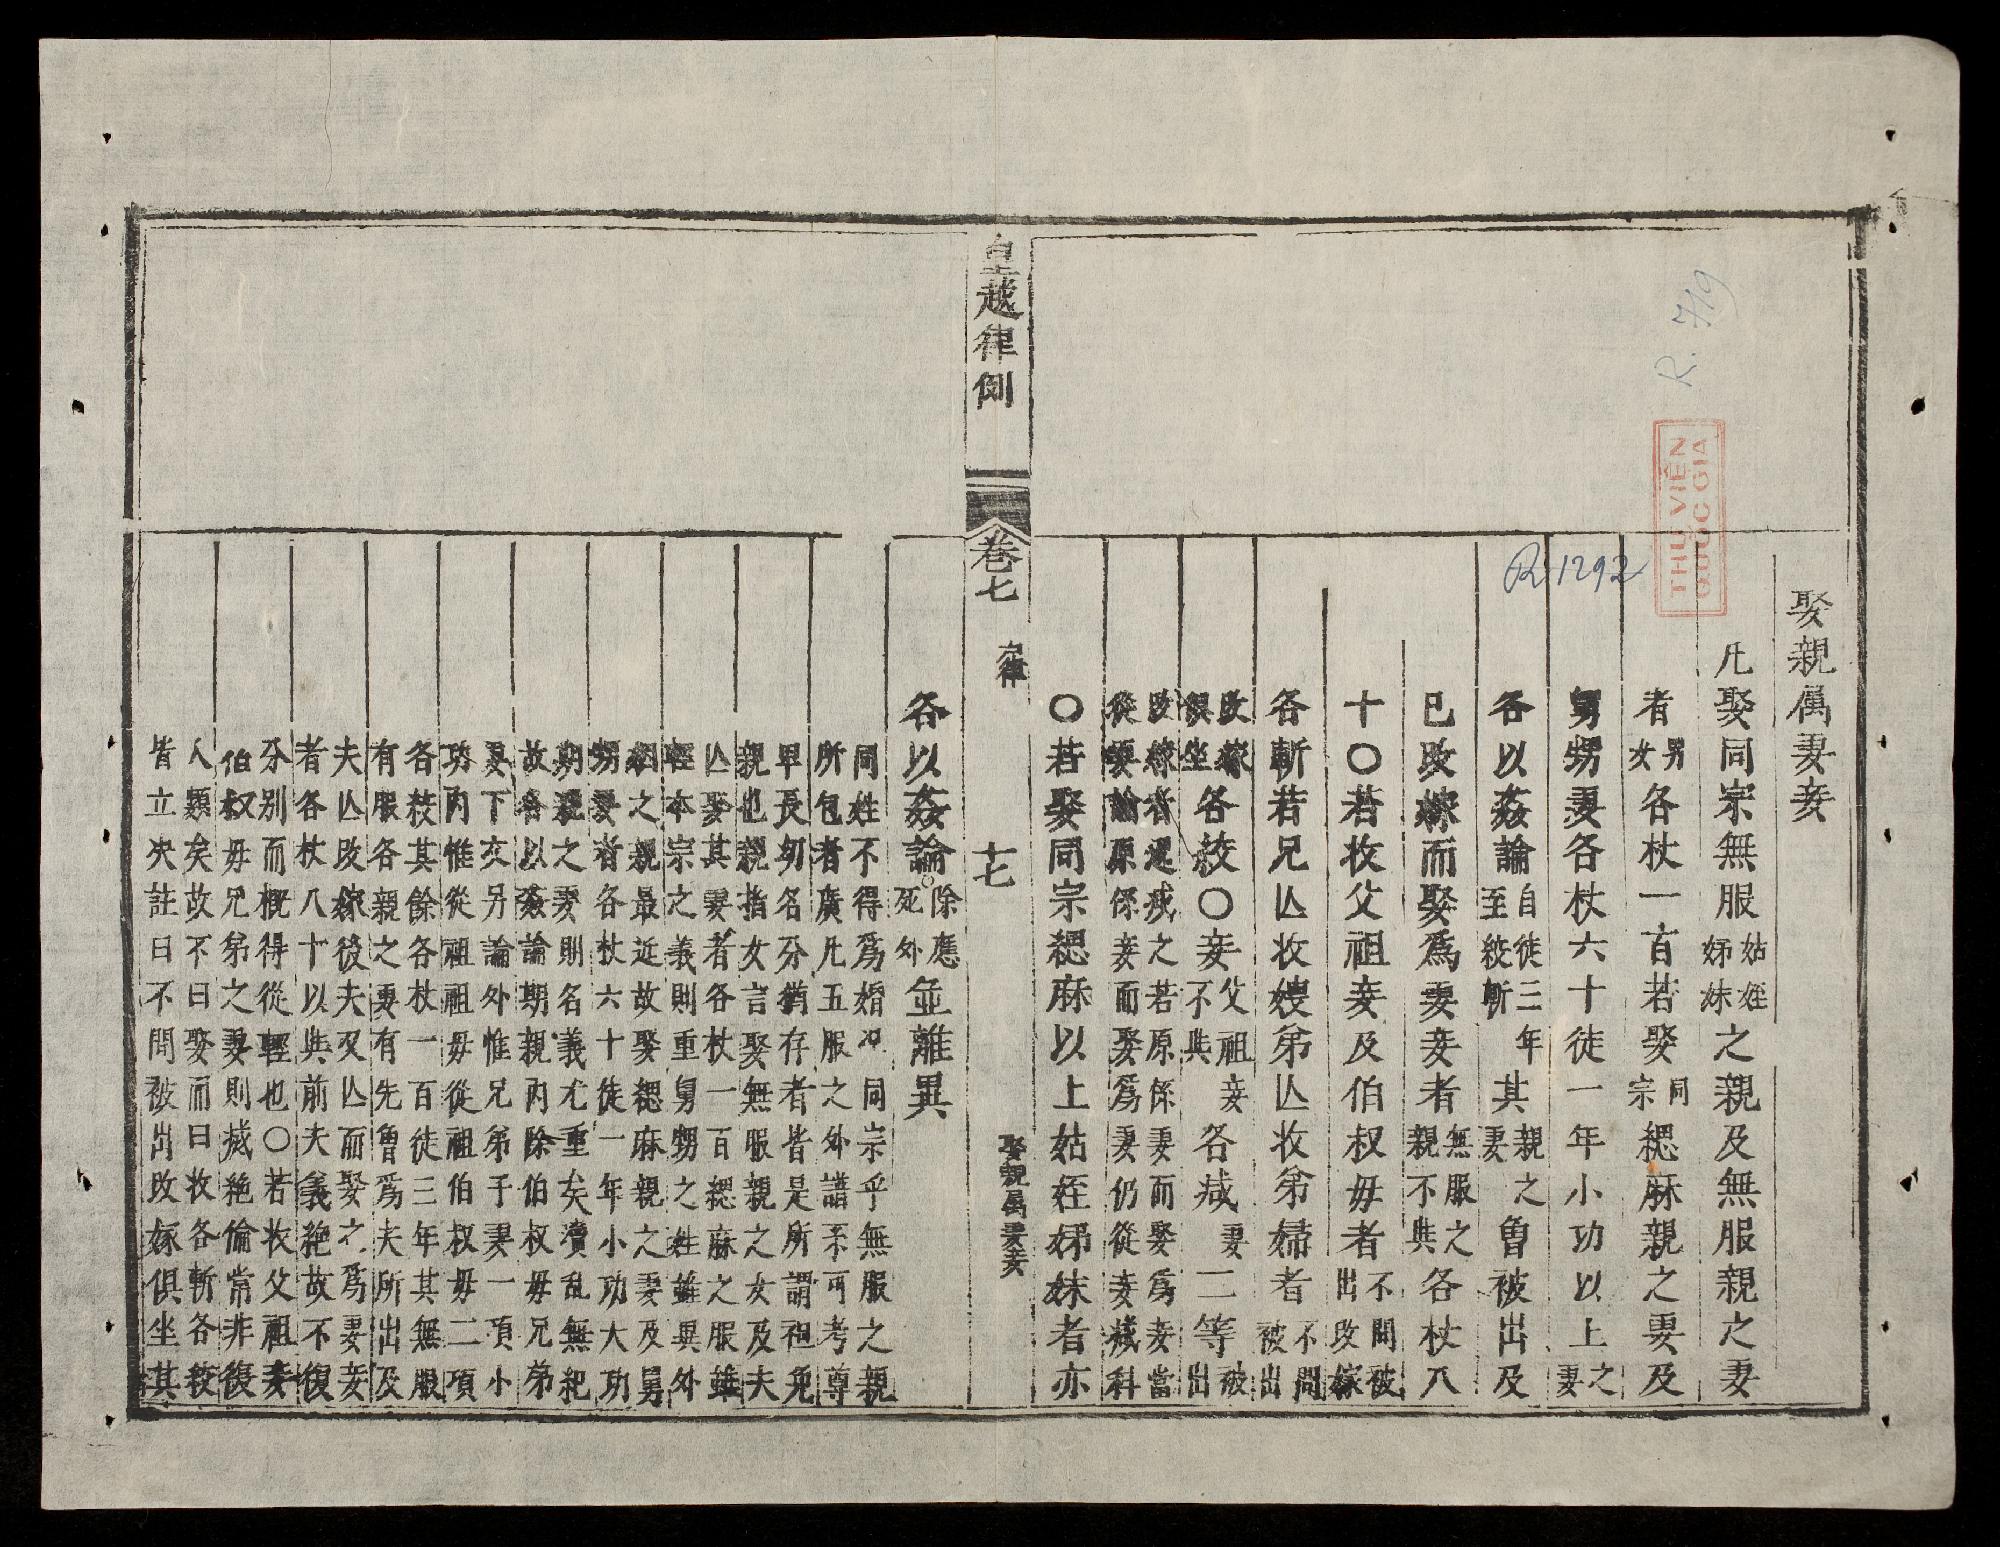 娶親属妻妾
凡娶同宗無服姑姪姊妹之親及無服親之妻
者男女各杖一百若娶同宗緦麻親之妻及
舅甥妻各杖六十徒一年小功以上之妻
各以姦論自徒三年至絞斬其親之妻曾被出及
已改嫁而娶爲妻妾者無服之親不與各杖八
十〇若收父祖妾及伯叔母者不問被出改嫁
各斬若兄亾收嫂弟亾收弟婦者不問被出
改嫁俱坐各絞〇妾父祖妾不與各减妻二等被出
改嫁者逓减之若原係妻而娶爲妾當
從妻論原係妾而娶爲妻仍從妾减科
〇若娶同宗緦麻以上姑姪姊妹者亦
皇越律例
卷七
戸律
十七
娶親属妻妾
各以姦論除應死外並離異
同姓不得爲婚况同宗乎無服之親
所包者廣凡五服之外譜系可考尊
卑長㓜名分猶存者皆是所謂袒免
親也親指女言娶無服親之女及夫
亾娶其妻者各杖一百緦麻之服雖
輕本宗之義則重舅甥之姓雖異外
姻之親最近故娶緦麻親之妻及舅
甥妻者各杖六十徒一年小功大功
期親之妻則名義尤重矣瀆乱無紀
故各以姦論期親內除伯叔母兄弟
妻下文另論外惟兄弟子妻一項小
功內惟從祖祖母從祖伯叔母二項
各杖其餘各杖一百徒三年其無服
有服各親之妻有先曾爲夫所出及
夫亾改嫁後夫又亾而娶之爲妻妾
者各杖八十以與前夫義絶故不復
分別而概得從輕也〇若收父祖妾
伯叔母兄弟之妻則滅絶倫常非復
人類矣故不曰娶而曰收各斬各絞
皆立决註曰不問被出改嫁俱坐其
R. 719
R 1292
THƯ VIỆN
QUỐC GIA